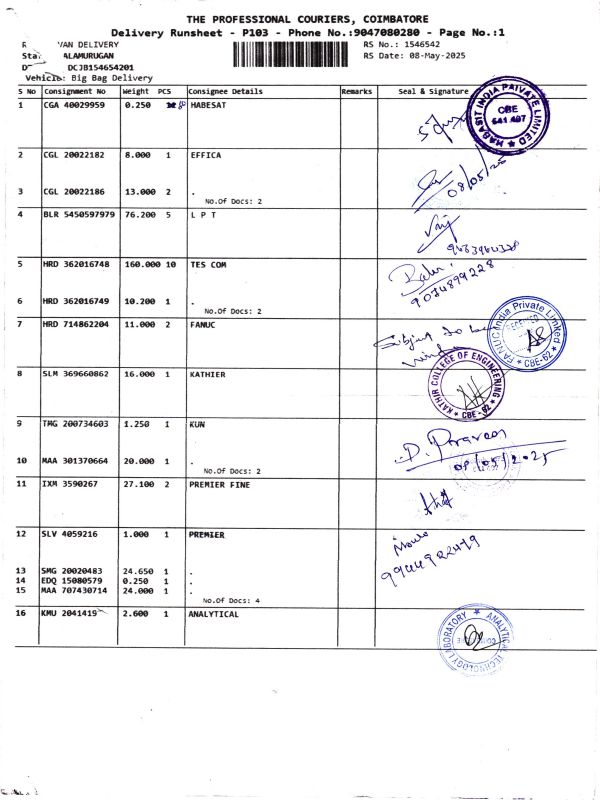 THE PROFESSIONAL COURIERS, COIMBATORE
Delivery Runsheet - P103 - Phone No.:9047080280 - Page No.:1
VAN DELIVERY RS No : 1546542
ALAMURUGAN RS Date: 08-May-2025
DCJB154654201
Vehicle: Big Bag Delivery
S No Consignment No Weight PCS Consignee Details Remarks Seal & Signature
1 CGA 40029959 0.250 HABESAT
HABASIT INDIA PRIVATE LIMITED
CBE
641.407
2 CGL 20022182 8.000 1 EFFICA
08/05/25
3 CGL 20022186 13.000 2 .
No.Of Docs: 2
4 BLR 5450597979 76.200 5 L P T
5 HRD 362016748 160.000 10 TES COM
9074899228
6 HRD 362016749 10.200 1 .
No.Of Docs: 2
7 HRD 714862204 11.000 2 FANUC
FANUC India Private Limited
RECEIVED
CBE-62
Subject to be
8 SLM 369660862 16.000 1 KATHIER
KATHIR COLLEGE OF ENGINEERING
CBE-62
9 TMG 200734603 1.250 1 KUN
D. Praveen
08/05/2025
10 MAA 301370664 20.000 1 .
No.Of Docs: 2
11 IXM 3590267 27.100 2 PREMIER FINE
12 SLV 4059216 1.000 1 PREMIER
9944922479
13 SMG 20020483 24.650 1 .
14 EDQ 15080579 0.250 1 .
15 MAA 707430714 24.000 1 .
No.Of Docs: 4
16 KMU 2041419 2.600 1 ANALYTICAL
ANALYTICAL TECHNOLOGY LABORATORY